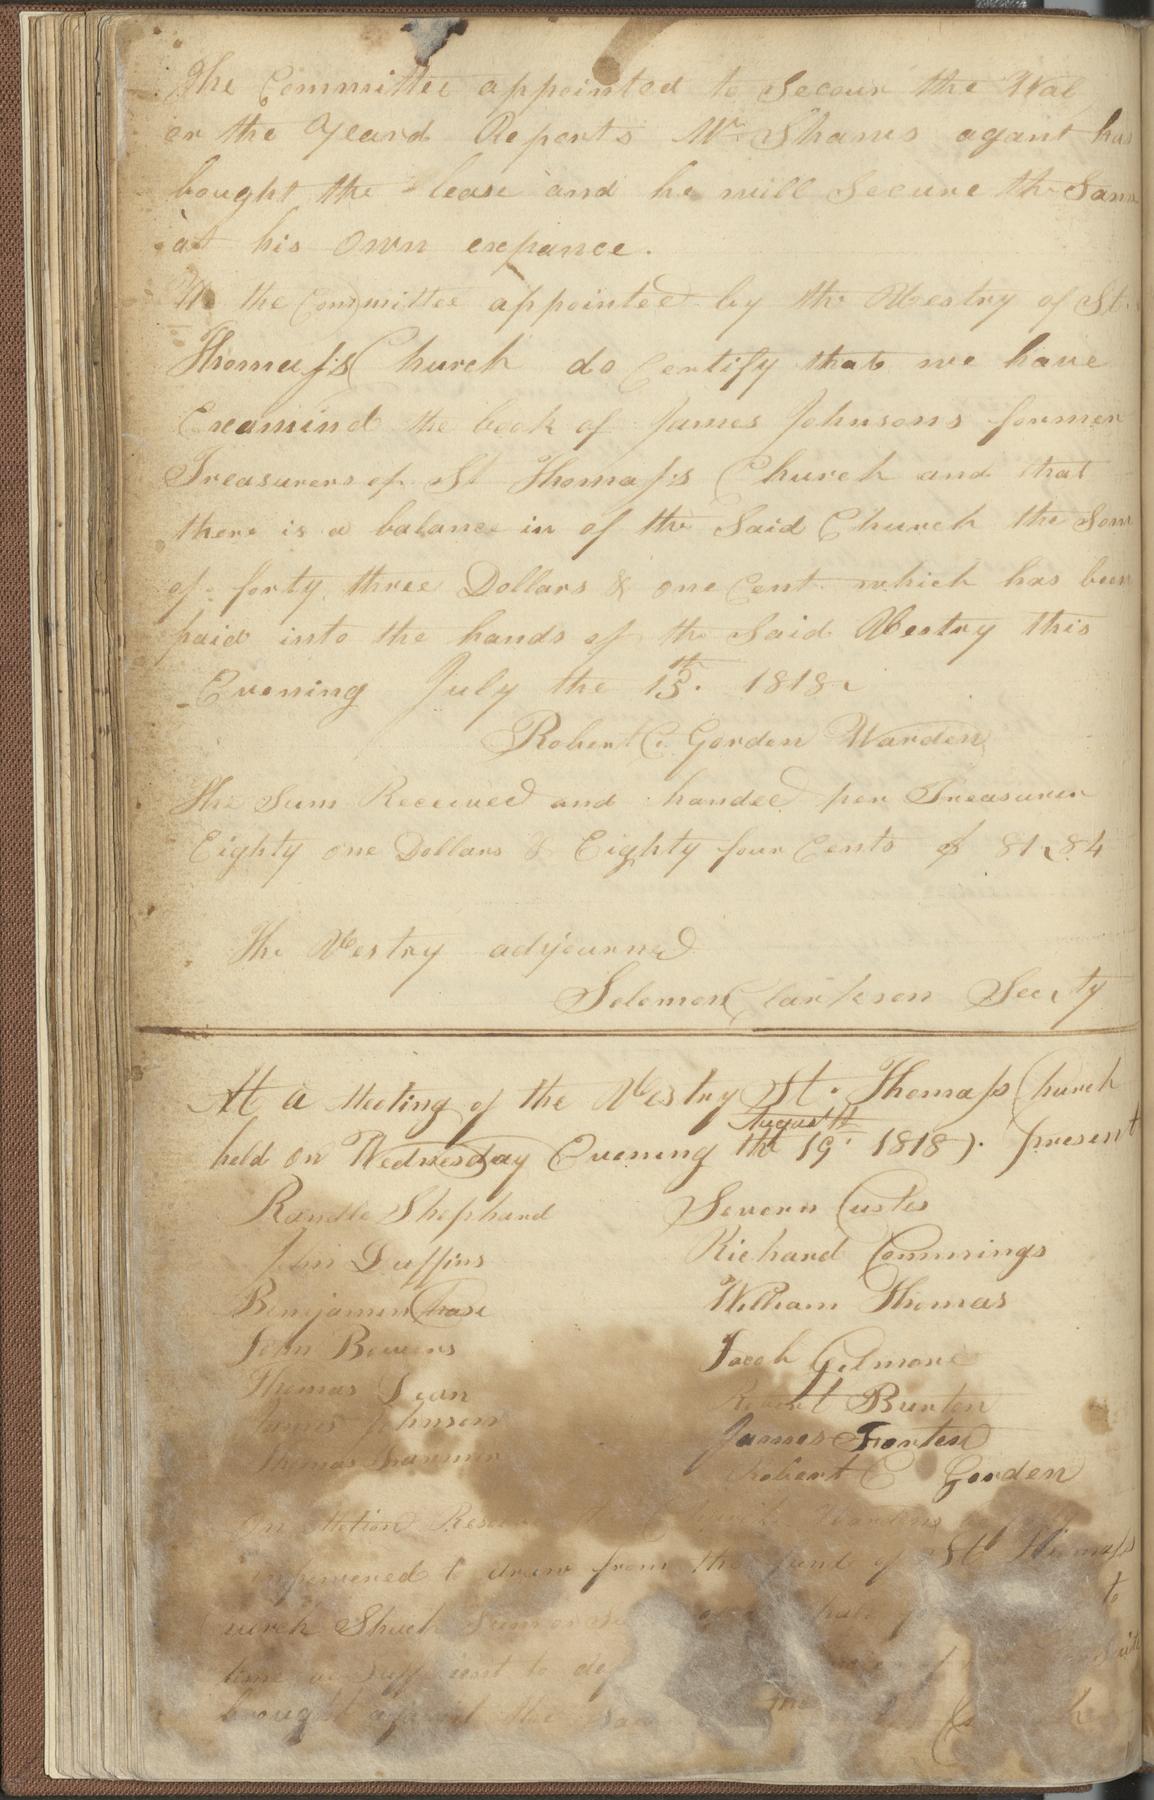 The Committee appointed to Secour the Wal
or the Yeard Reports Mr Shanis agant has
bought the lease and he will Secure the Same
at his Own expance.
We the Committee appointed by the Vestry of St.
Thomas's Church do Certify that we have
Examind the book of James Johnsons former
Treasurers of St Thomas's Church and that
there is a balance in of the Said Church the Som
of forty three Dollars & one Cent which has been
paid into the hands of the Said Vestry this
Evening July the 15th. 1818
Robert C. Gorden Warden
The Sum Received and handed per Treasurer
Eighty one Dollars & Eighty four Cents $ 81.84
The Vestry adjourned
Solomon Clarkson Secty
At a Meeting of the Vestry St. Thomass Church
August
held on Wednesday Evening the 19th 1818). present
Randle Shephard Severn Custis
John Duffins Richard Commings
Benjamin Chase William Thomas
John Bowers Jacob Gilmore
Thomas Robert Burton
James Johnson James Forten
Thomas Robert C Gorden
On Motion Church Wardens
impowered to draw from the fund of St Thomass
Shuch Sum to
time as Sufficient to
brought against the